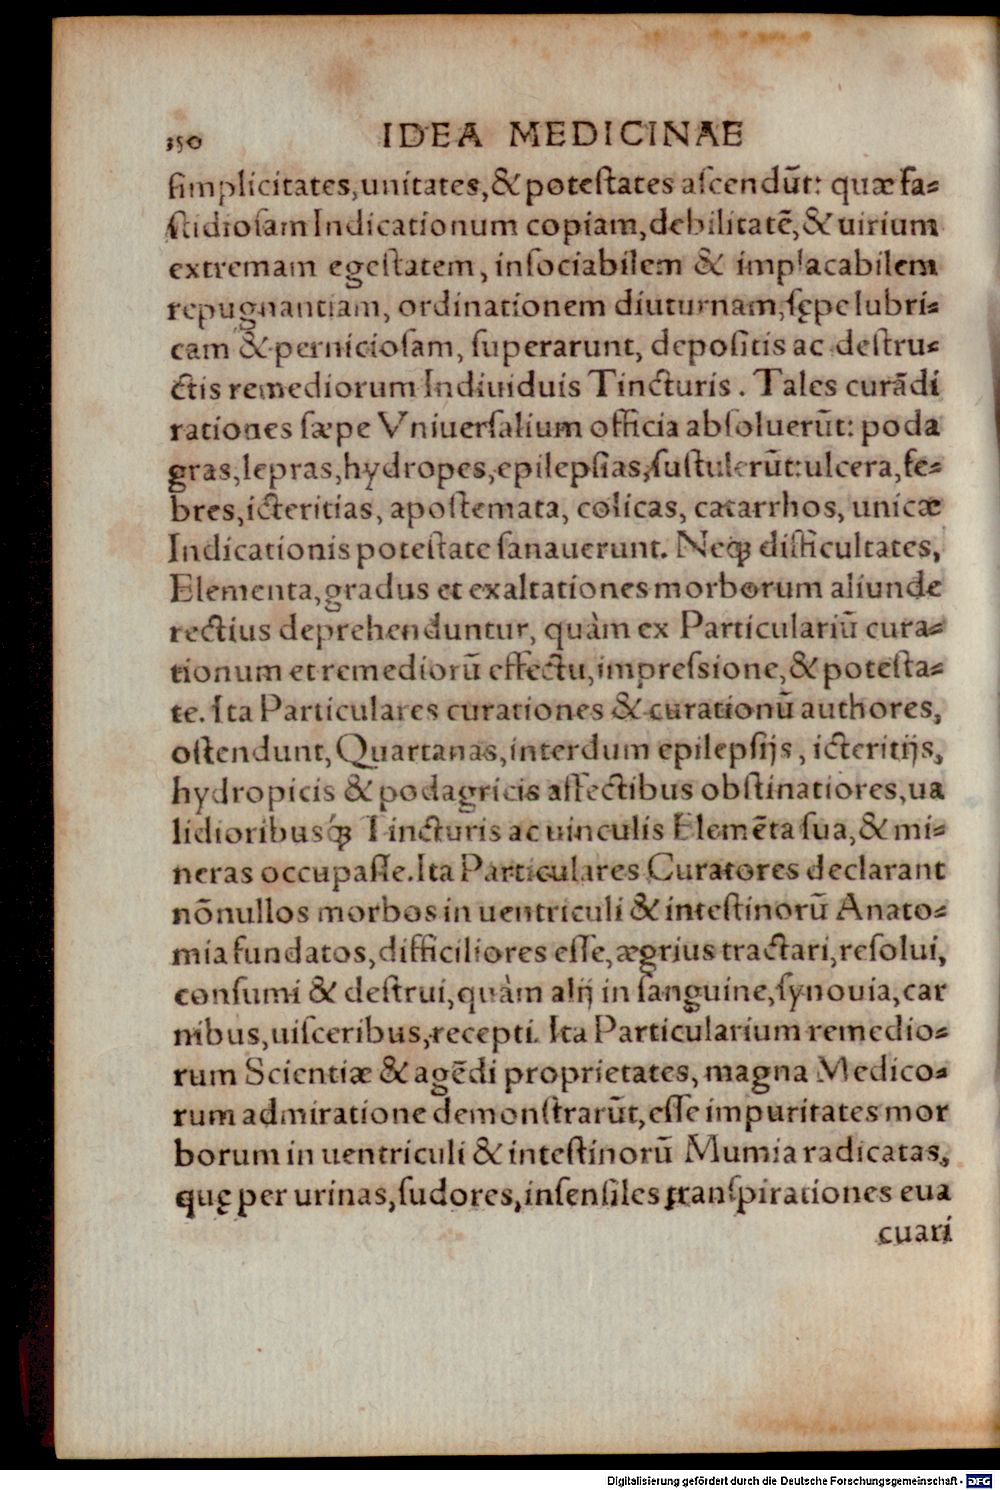 350 IDEA MEDICINAE
ſimplicitates, unitates, & poteſtates aſcendūt: quæ fa-
ſtidioſam Indicationum copiam, debilitatē, & uirium
extremam egeſtatem, inſociabilem & implacabilem
repugnantiam, ordinationem diuturnam, ſępe lubri-
cam & pernicioſam, ſuperarunt, depoſitis ac deſtru-
ctis remediorum Indiuiduis Tincturis. Tales curādi
rationes ſæpe Vniuerſalium officia abſoluerūt: poda
gras, lepras, hydropes, epilepſias, ſuſtulerūt: ulcera, fe-
bres, icteritias, apoſtemata, colicas, catarrhos, unicæ
Indicationis poteſtate ſanauerunt. Neqꝫ difficultates,
Elementa, gradus et exaltationes morborum aliunde
rectius deprehenduntur, quàm ex Particulariū cura-
tionum et remediorū effectu, impreſsione, & poteſta-
te. Ita Particulares curationes & curationū authores,
oſtendunt, Quartanas, interdum epilepſijs, icteritijs,
hydropicis & podagricis affectibus obſtinatiores, ua
lidioribusq́ꝫ Tincturis ac uinculis Elemēta ſua, & mi-
neras occupaſſe. Ita Particulares Curatores declarant
nōnullos morbos in uentriculi & inteſtinorū Anato-
mia fundatos, difficiliores eſſe, ægrius tractari, reſolui,
conſumi & deſtrui, quàm alij in ſanguine, ſynouia, car
nibus, uiſceribus, recepti. Ita Particularium remedio-
rum Scientiæ & agēdi proprietates, magna Medico-
rum admiratione demonſtrarūt, eſſe impuritates mor
borum in uentriculi & inteſtinorū Mumia radicatas,
quę per urinas, ſudores, inſenſiles tranſpirationes eua
cuari
Digitalisierung gefördert durch die Deutsche Forschungsgemeinschaft - DFG